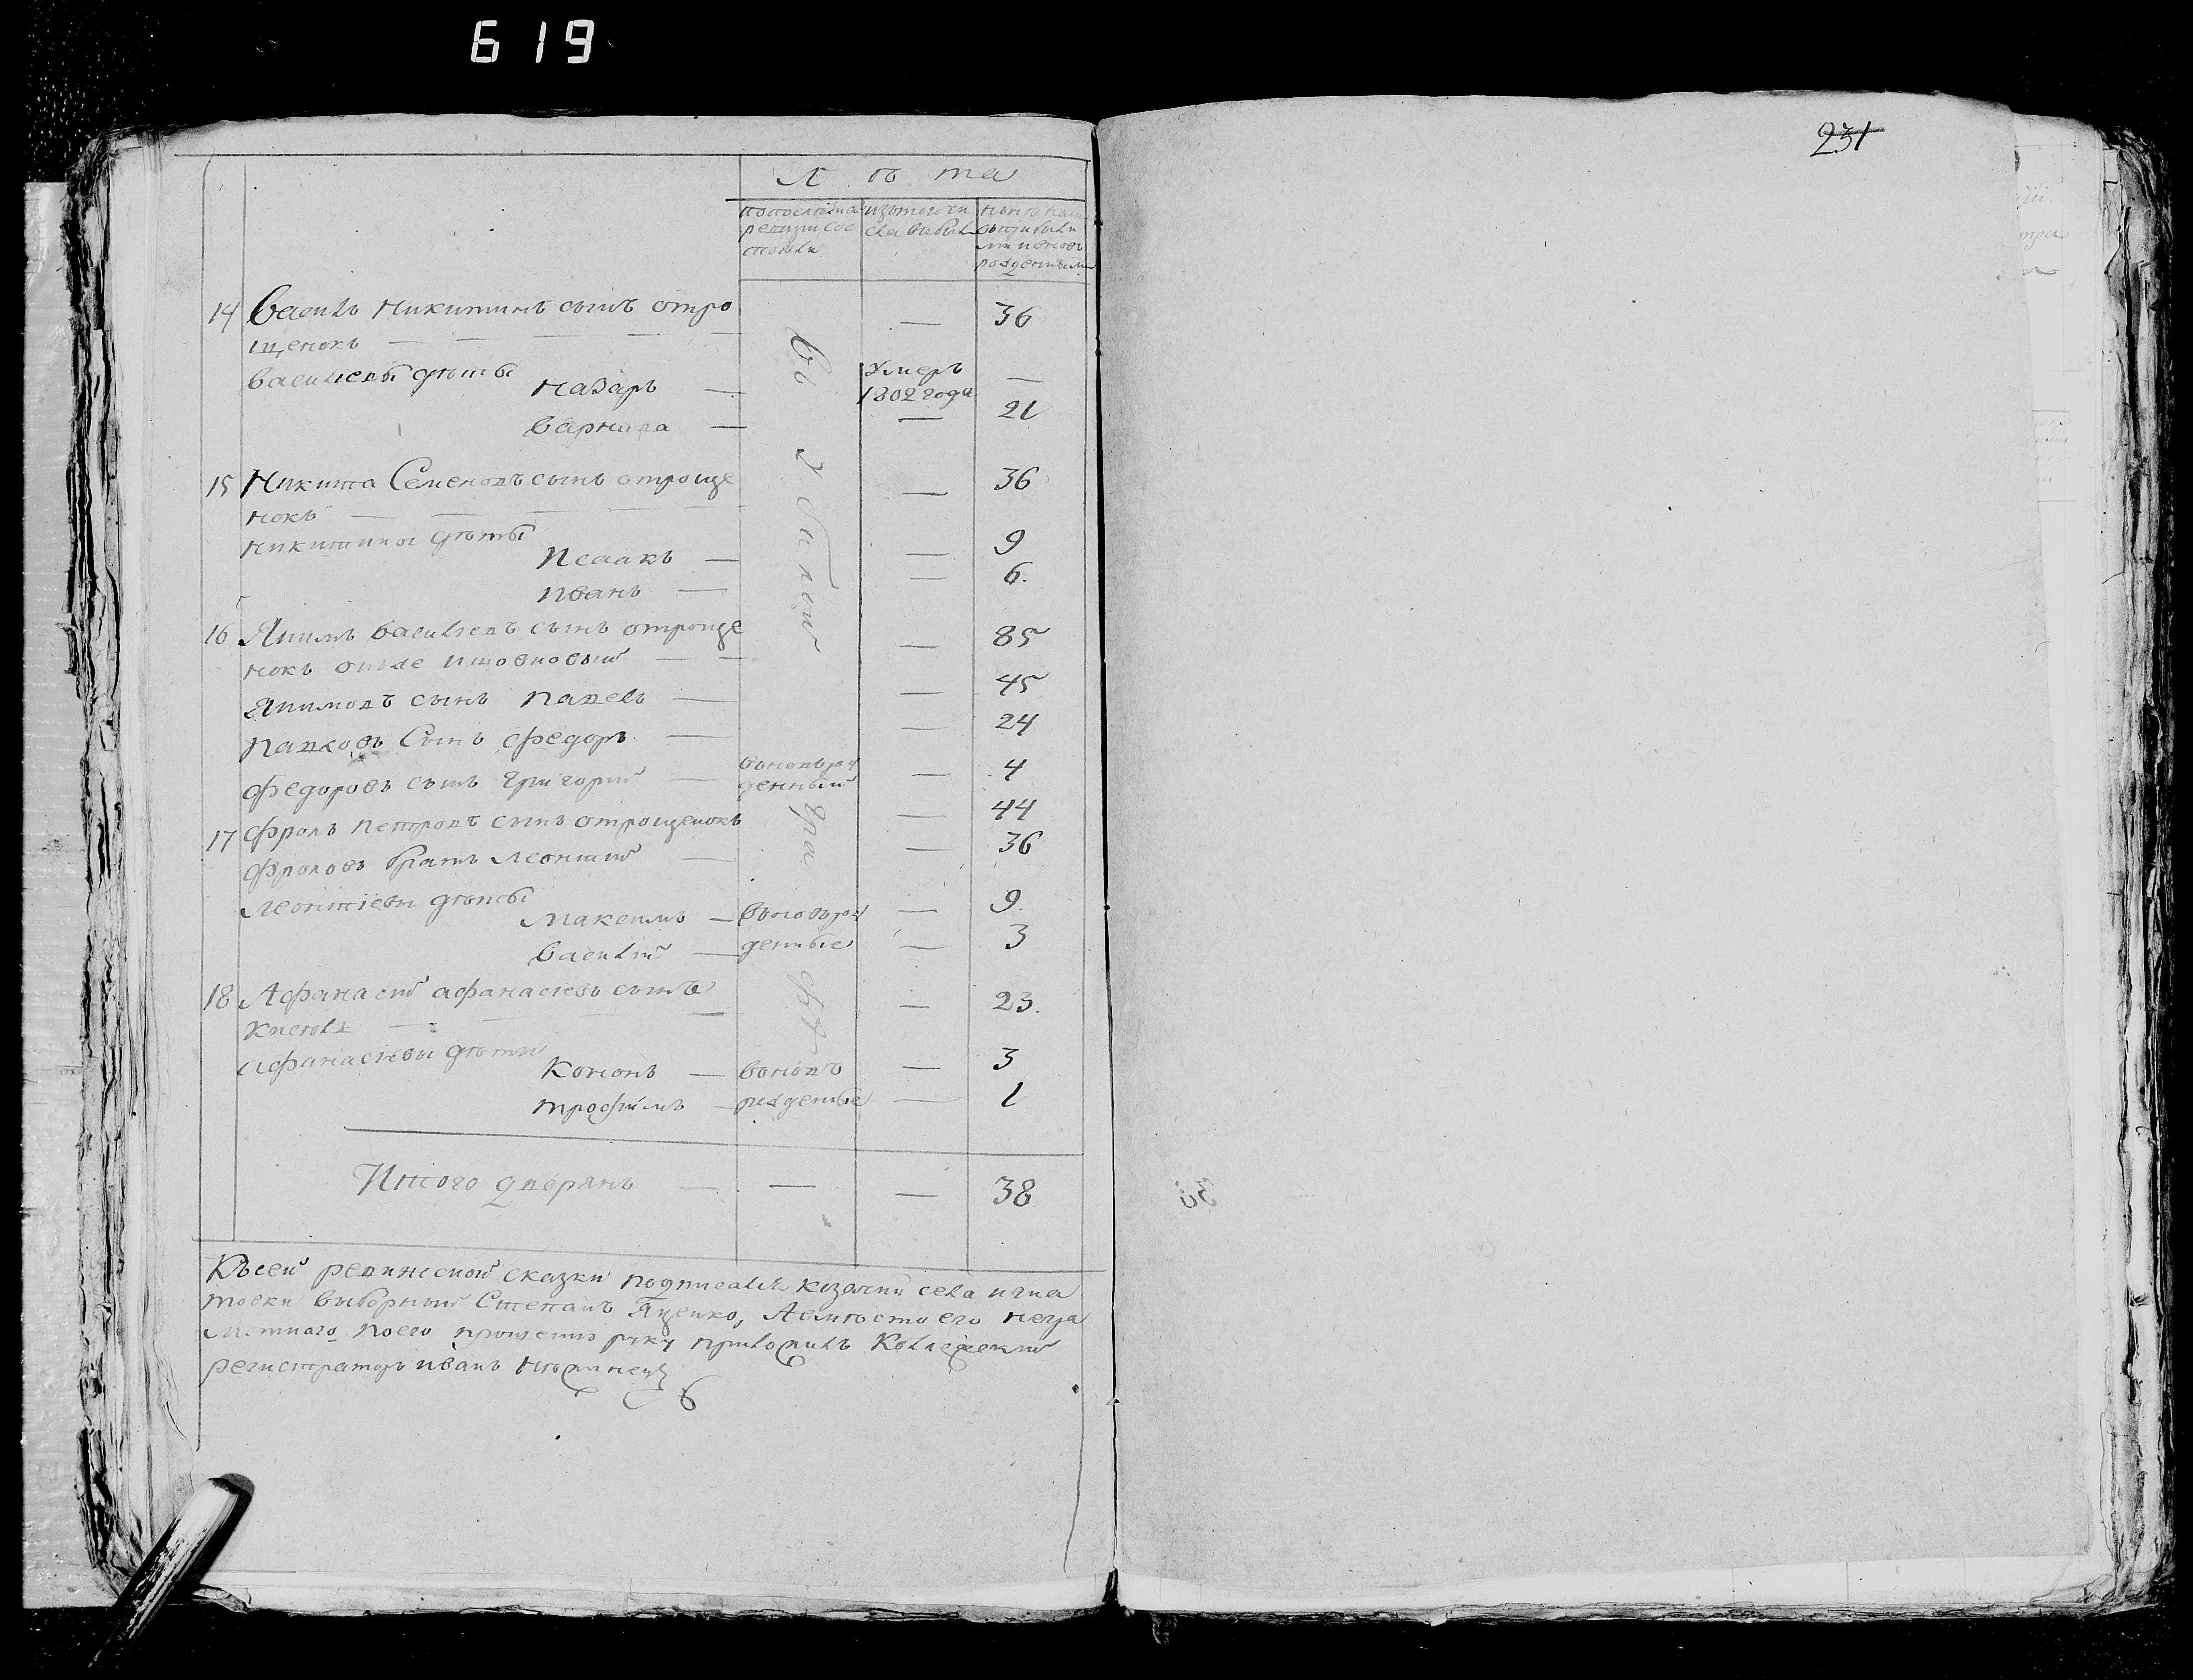 619
231
Л ѣ та
попоследнеи ревизии состояли
изътого числа выбыло
14 Василь Никитинъ сынъ отро 36
щенокъ
Васильевы дѣты Назаръ — Умеръ 1802 года —
Варнава — — 21
15 Никита Семеновъ сынъ отроще — 36
нокъ
Никитины дѣты Исаакъ — — 9
Иванъ — — 6.
16 Якимъ Васильевъ сынъ отроще — 85
нокъ онъже
Якимовъ сынъ Павелъ — — 45
Павловъ Сынъ Федоръ — — 24
Федоровъ сынъ Григорий — вновьрожденный — 4
17 Фролъ Петровъ сынъ отрощенокъ — 44
Фроловъ братъ Леонтий — — 36
Леонтіевы дѣты Максимъ — вновьрож — 9
Василий — денные — 3
18 Афанасий афанасіевъ сынъ — 23.
афанасіевы дѣти Кононъ — вновъ — 3
трофимъ — рожденные — 1
Итого дворянъ — — — 38
Къ сей ревижской сказки подписалсь козачий села игна
товки выборный Степанъ Яценко, Авместо его негра
мотнаго поего прошению руку приложилъ Колежский
регистраторъ иванъ